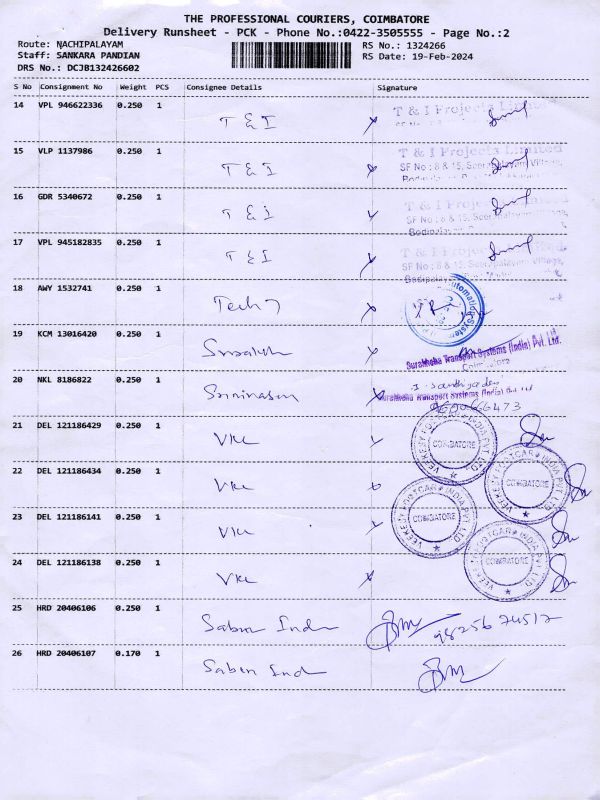 THE PROFESSIONAL COURIERS, COIMBATORE
Delivery Runsheet - PCK - Phone No.:0422-3505555 - Page No.:2
Route: NACHIPALAYAM
RS No.: 1324266
Staff: SANKARA PANDIAN
RS Date: 19-Feb-2024
DRS No.: DCJB132426602
S No Consignment No Weight PCS Consignee Details Signature
14 VPL 946622336 0.250 1
T & I
T & I Projects Limited
15 VLP 1137986 0.250 1
T & I
T & I Projects Limited
SF No : 8 & 15, Seerapalayam Village,
16 GDR 5340672 0.250 1
T & I
T & I Projects Limited
SF No : 8 & 15, Seerapalayam Village,
17 VPL 945182835 0.250 1
T & I
T & I Projects Limited
SF No : 8 & 15, Seerapalayam Village,
18 AWY 1532741 0.250 1
Tech 7
Automation System
19 KCM 13016420 0.250 1
Transport Systems (India) Pvt. Ltd.
Coimbatore
20 NKL 8186822 0.250 1
Srinivasan
Transport Systems (India) Pvt. Ltd
21 DEL 121186429 0.250 1
VKC
COIMBATORE
22 DEL 121186434 0.250 1
VKC
COIMBATORE
23 DEL 121186141 0.250 1
VKC
COIMBATORE
24 DEL 121186138 0.250 1
VKC
COIMBATORE
25 HRD 20406106 0.250 1
Sabin Ind
26 HRD 20406107 0.170 1
Sabin Ind